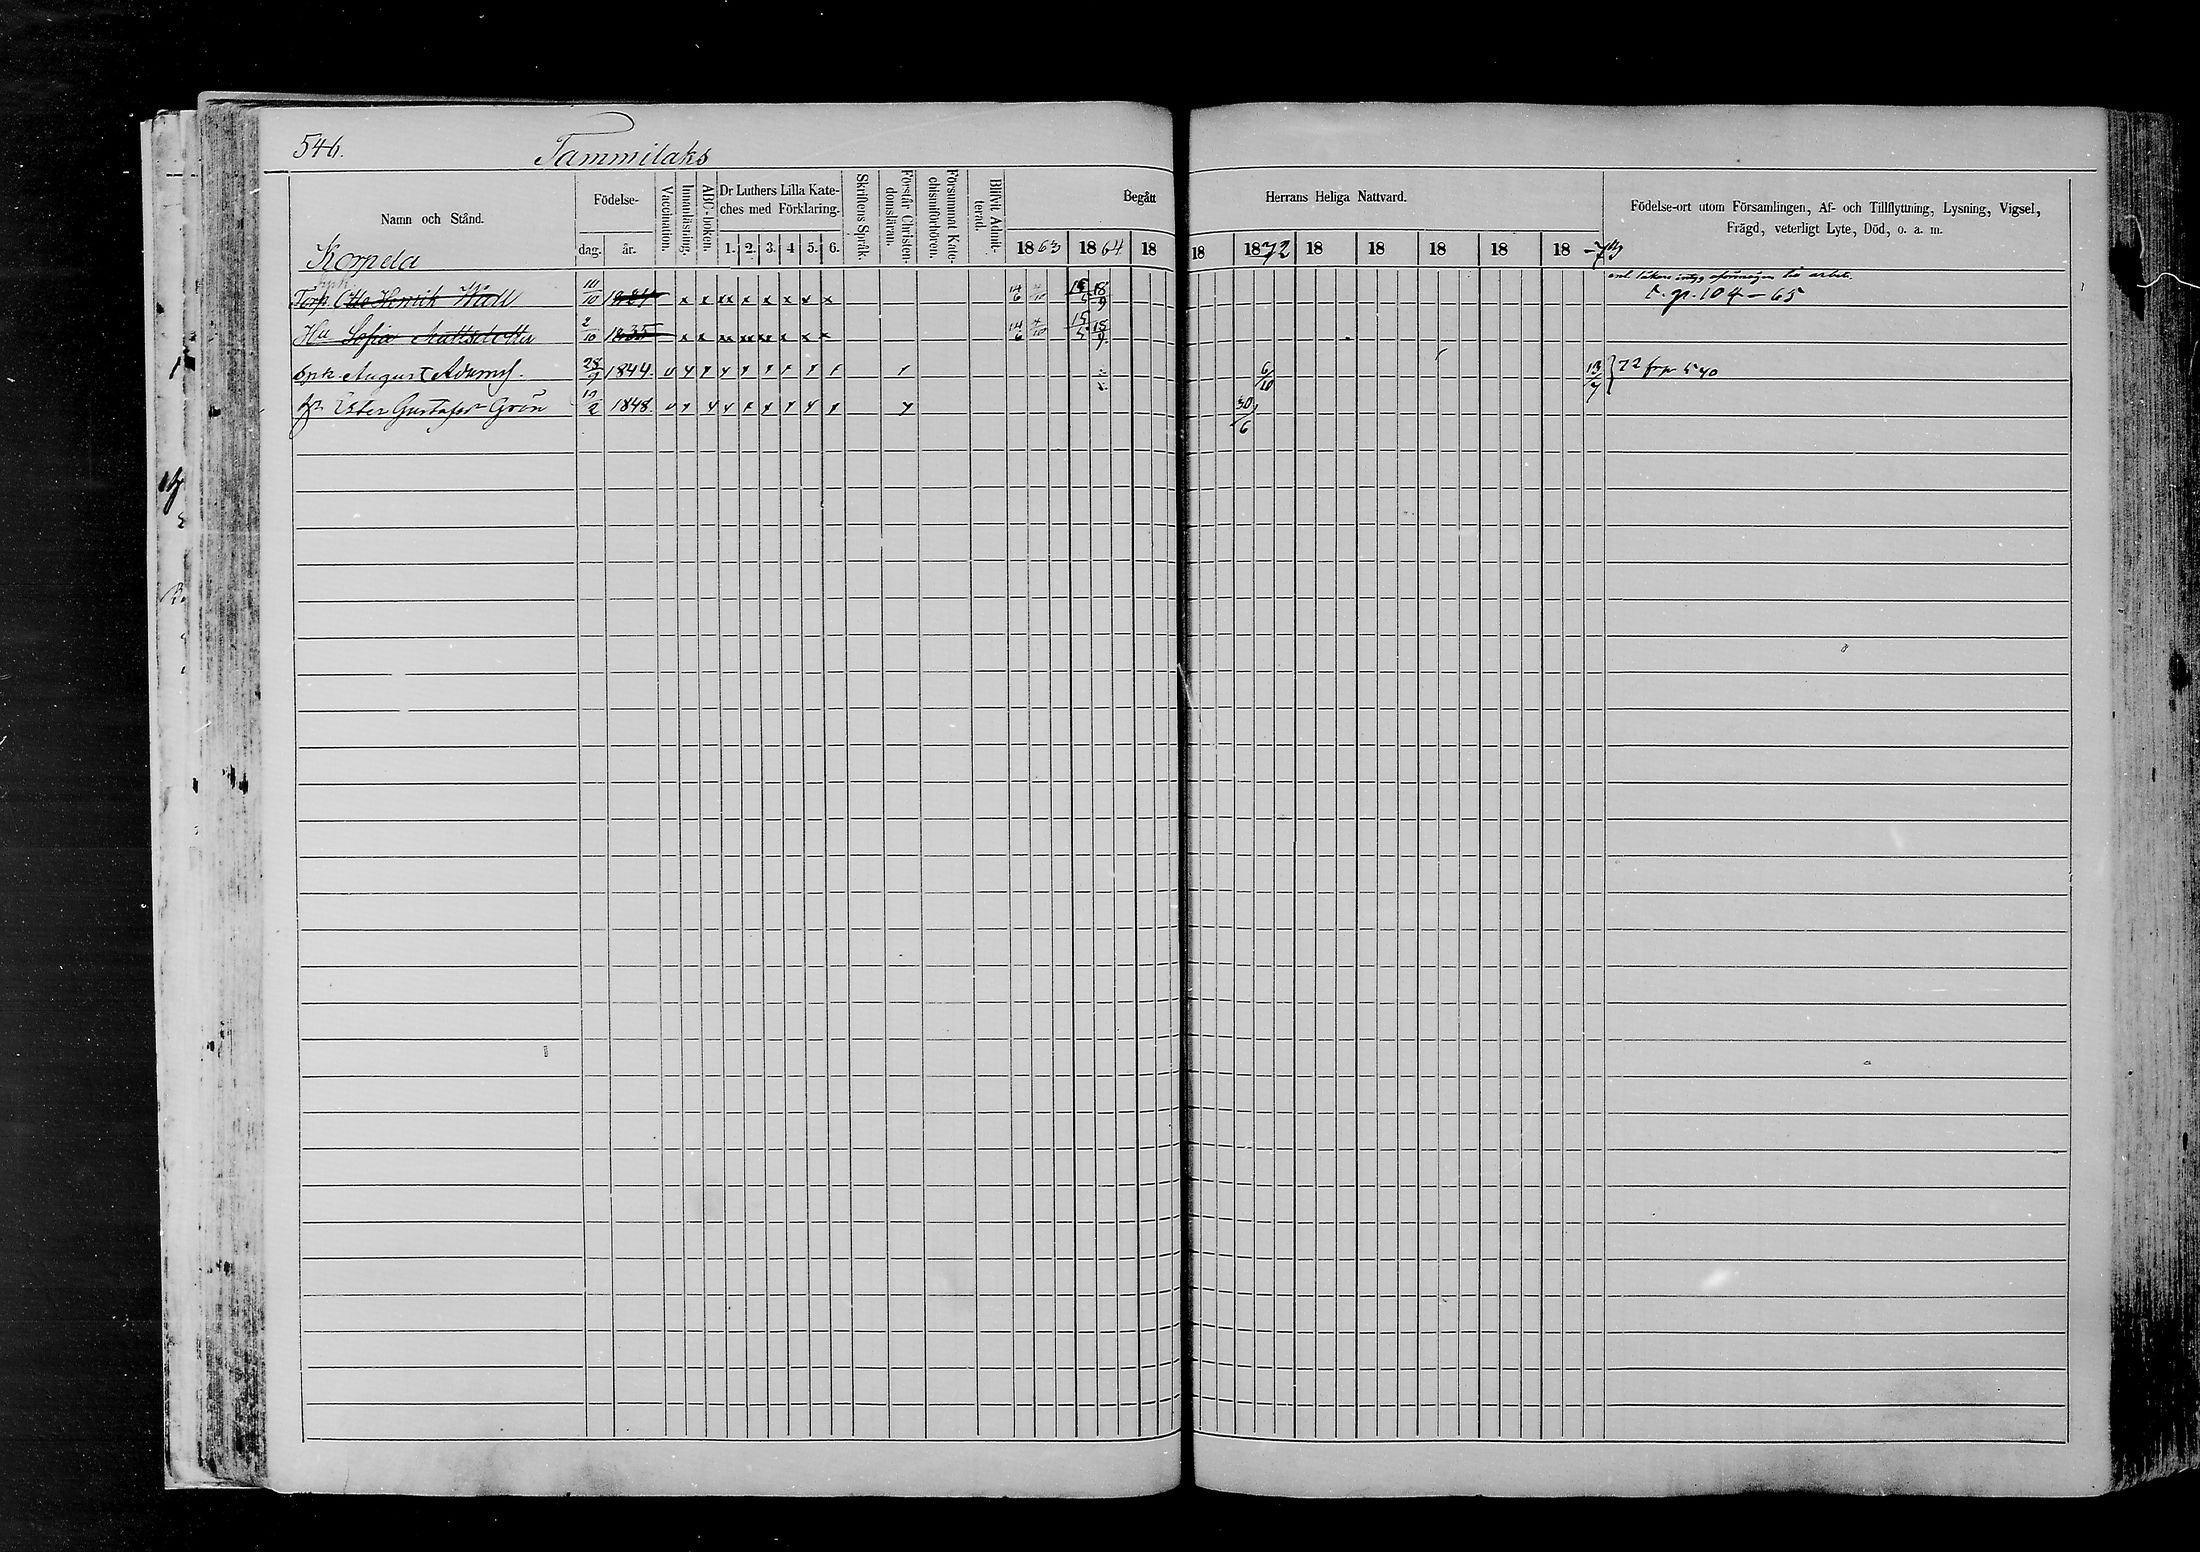 546.
Tammilaks
Namn och Stånd.
Födelse-
dag. år.
Vaccination.
Innanläsning.
ABC-boken.
Dr Luthers Lilla Kate-
ches med Förklaring.
1. 2. 3. 4 5. 6.
Skriftens Språk.
Förstår Christen-
domsläran.
Försummat Kate-
chismiförhören.
Blifvit Admit-
terad.
Begått
Herrans Heliga Nattvard.
1863 1864 18 18 1872 18 18 18 18 18 -73
Födelse-ort utom Församlingen, Af- och Tillflyttning, Lysning, Vigsel,
Frägd, veterligt Lyte, Död, o. a. m.
Korpela
Torp. Otto Henrik Wall 10/10 x x xx x x x x x 14/6 18/9
t. p. 104 - 65
Hu Sofia Mattsdotter 2/10 1835 x x xx xx xx x x x 14/6 15/5 15/9
Spk August Adamsf. 28/9 1844. 6/10 13/7 72 frp 540
Ester Gustafsdr Grön 1848. 30/6